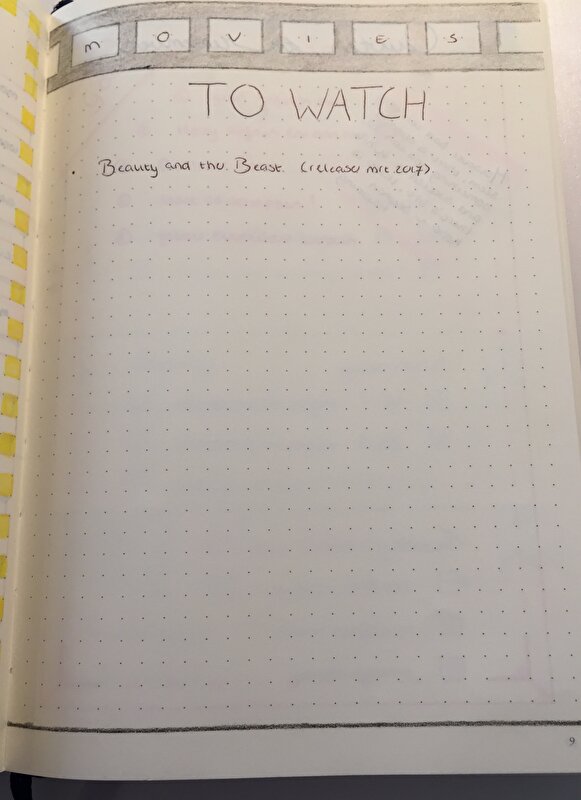 MOVIES
TO WATCH
· Beauty and the Beast. (release mrt 2017).
9